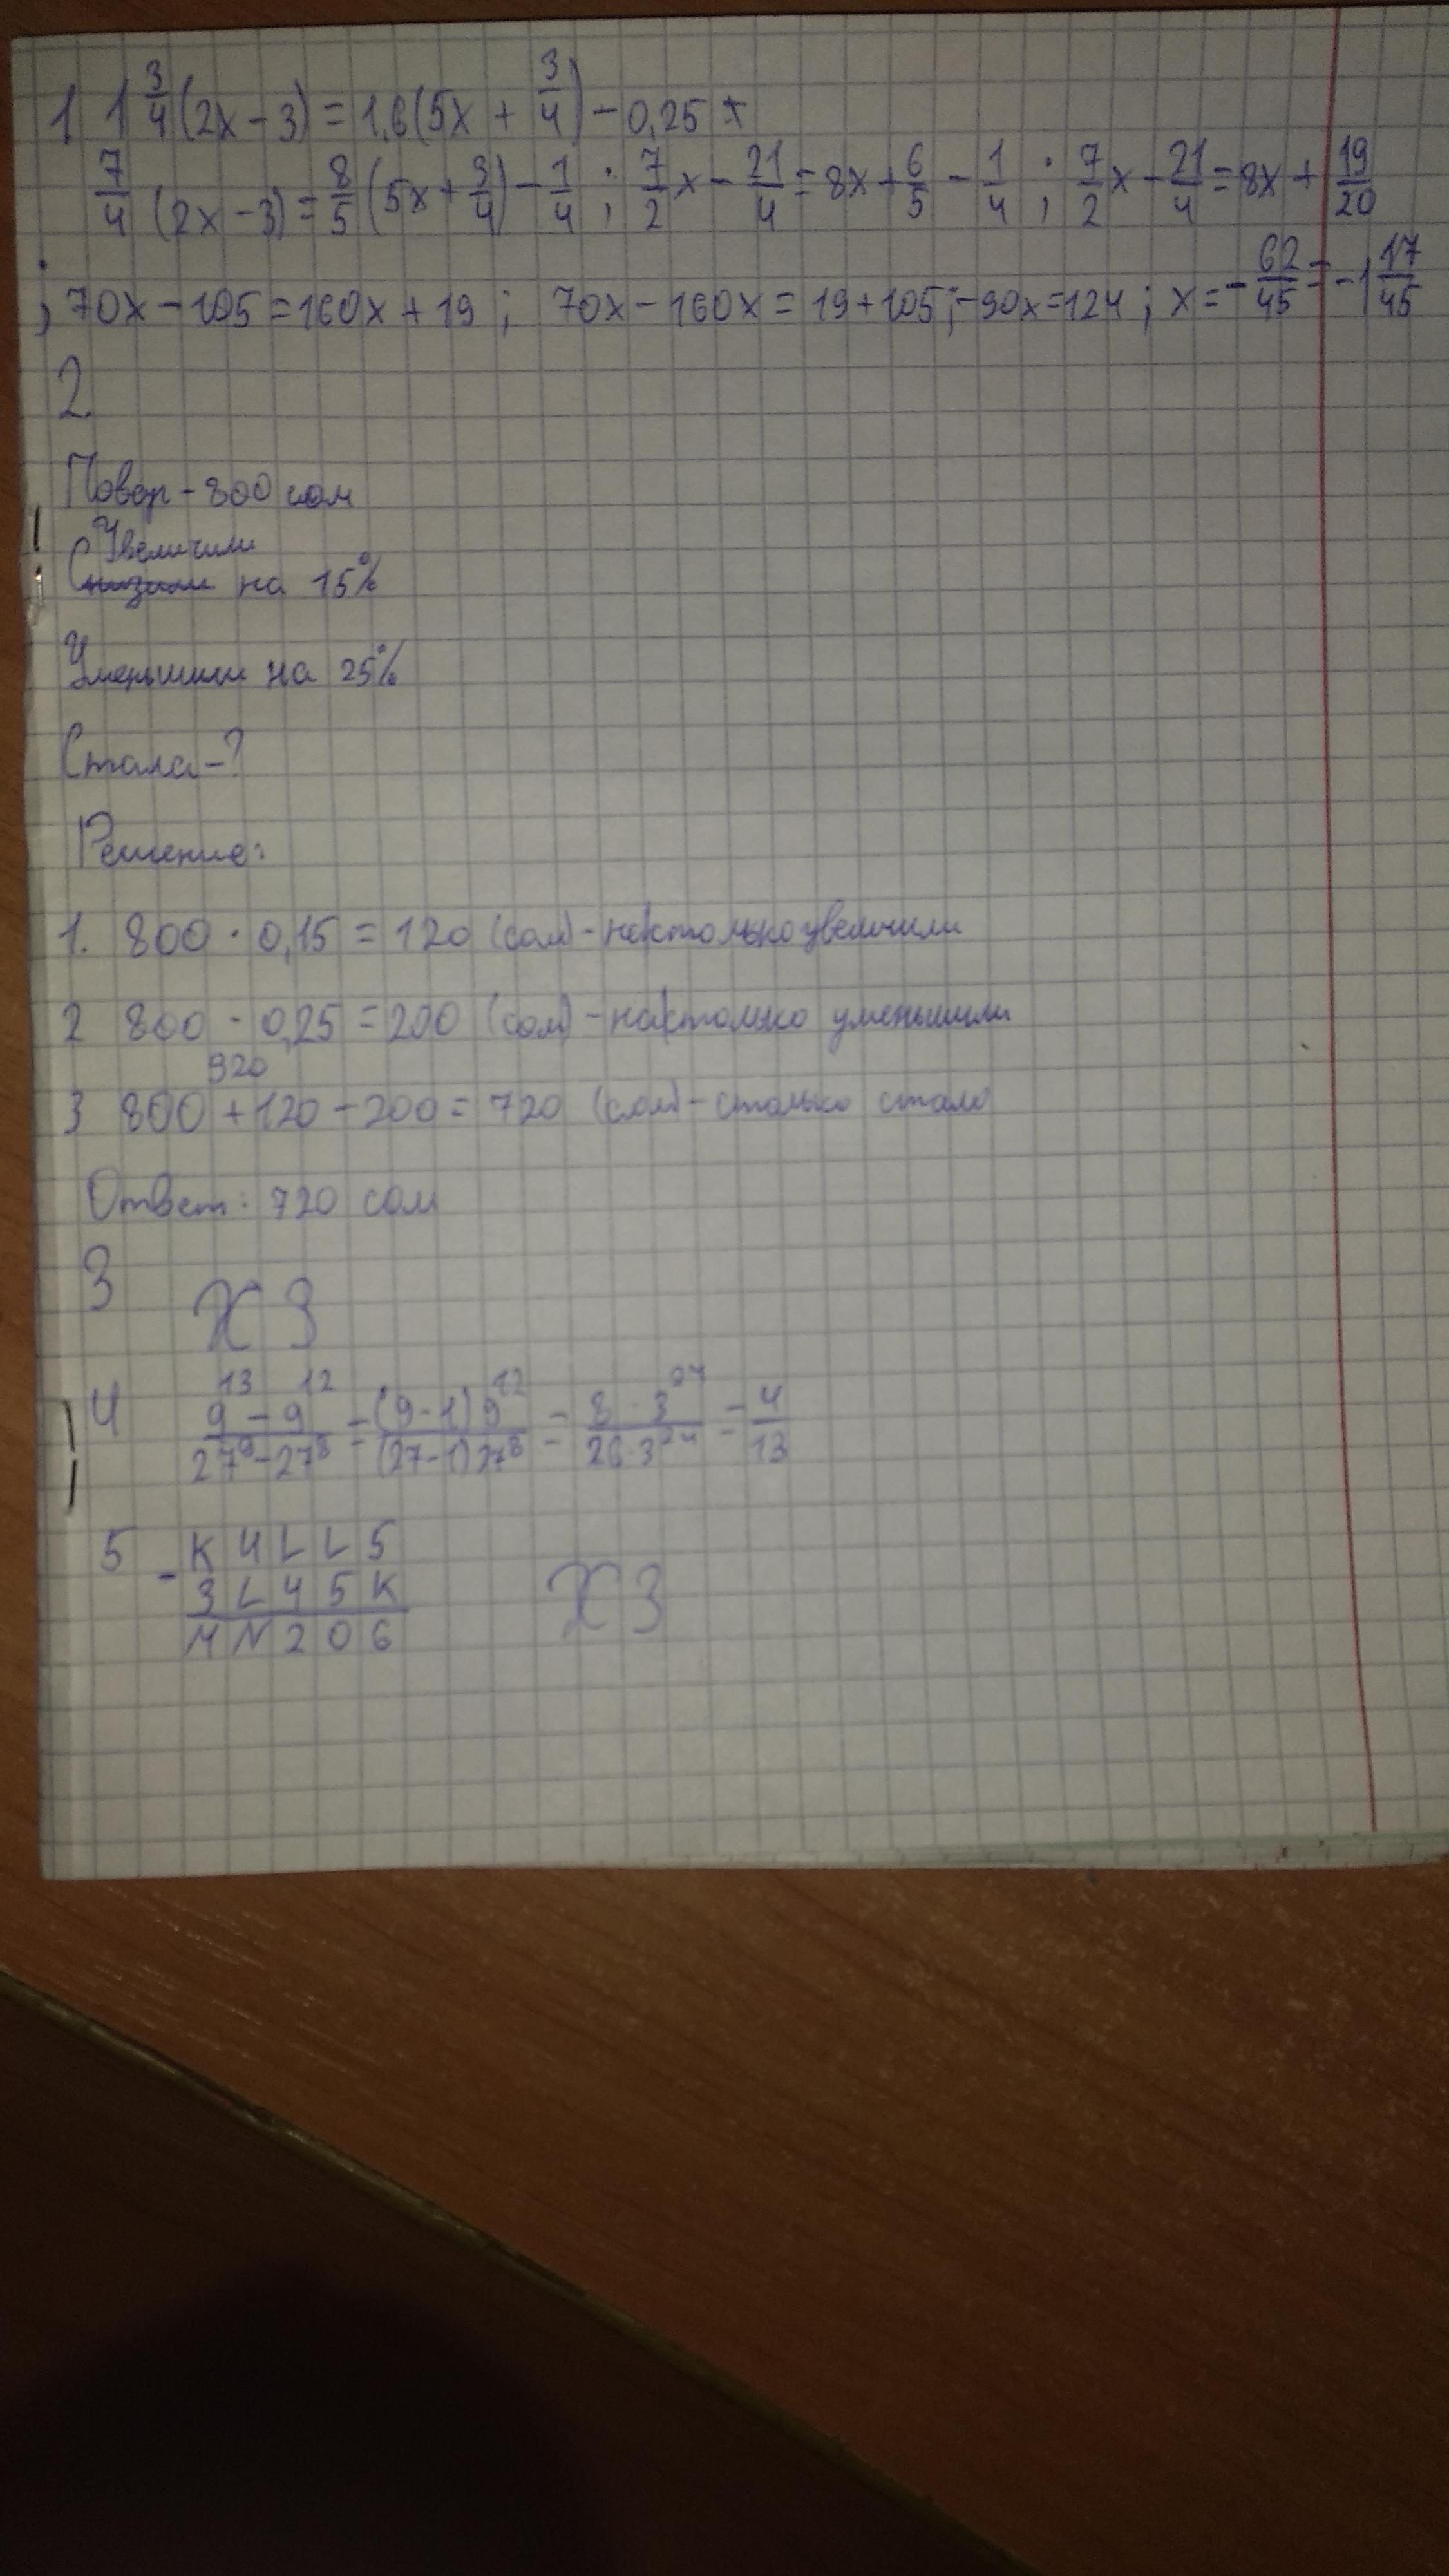 1 1 3/4 (2x - 3) = 1,6(5x + 3/4) - 0,25 x
7/4 (2x - 3) = 8/5 (5x + 3/4) - 1/4 ; 7/2 x - 21/4 = 8x + 6/5 - 1/4 ; 7/2 x - 21/4 = 8x + 19/20
; 70x - 105 = 160x + 19 ; 70x - 160x = 19 + 105 ; -90x = 124 ; x = - 62/45 = -1 17/45
2
Товар - 800 сом
Увеличили
Снизили на 15%
Уменьшили на 25%
Стала - ?
Решение:
1. 800 · 0,15 = 120 (сом) - настолько увеличили
2 800 · 0,25 = 200 (сом) - настолько уменьшили
920
3 800 + 120 - 200 = 720 (сом) - столько стало
Ответ: 720 сом
3 ХЗ
4 (9^13 - 9^12)/(27^9 - 27^8) = ((9-1) 9^12)/((27-1) 27^8) = (8 · 3^24)/(26 · 3^24) = 4/13
5 - K 4 L L 5
3 L 4 5 K ХЗ
M N 2 0 6